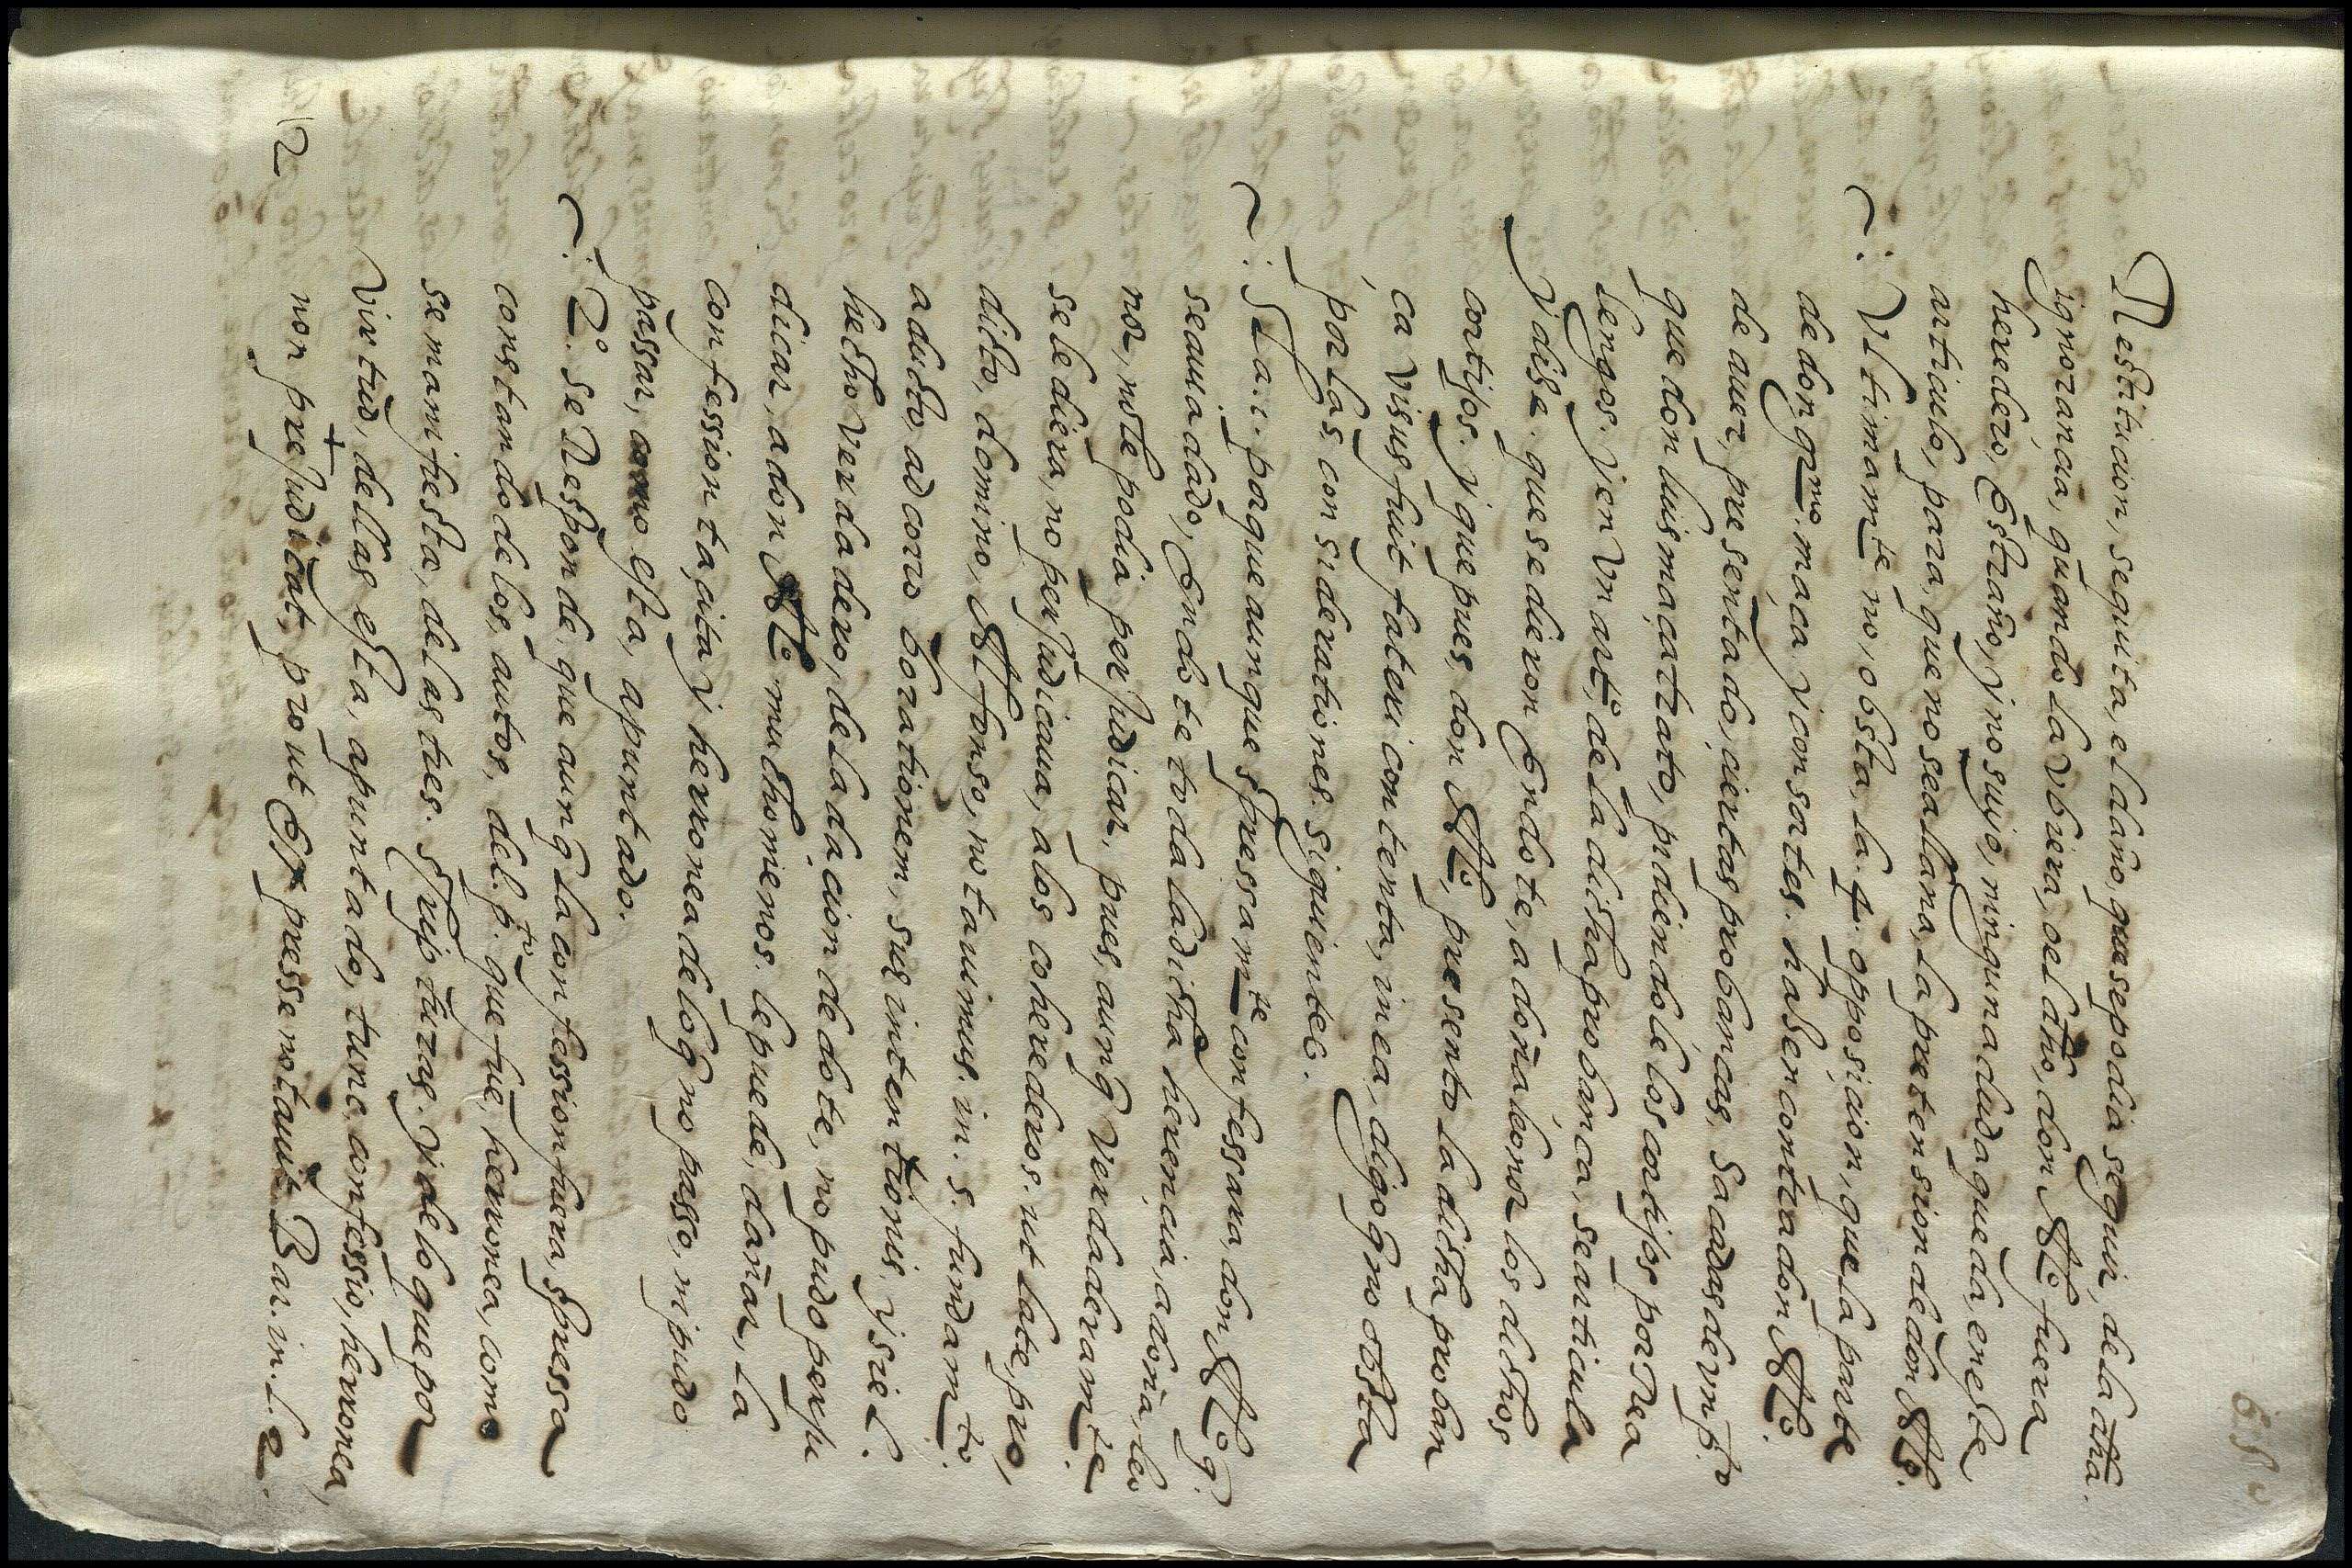 680
Restitucion, seguita, el daño, que se podia seguir, de la dha.
ignorancia, quando la Vbiera, o el año, don Alo. fuera
heredero, Estraño, y no suyo, ninguna duda queda, en este
articulo, para que no sea llana, la pretension de don Alo.
~: Vltimamte. no, obsta, la. 4. opposicion, que la parte
de don gmo. maça y consortes. hasen contra don Alo.
de auer, presentado, ciertas probanças, sacadas de vn po.
que don luis maça trato, pidiendole los cortijos por rea
lengos. y en vn arto. de la dicha probança, se articula
y dise. que se dieron En dote, a doña leonor los dichos
cortijos. y que pues, don Alo, presento la dicha proban
ça visus fuit fateri contenta, in ea, digo q no obsta
por las consideraciones. siguientes.
~: La. 1. porque aunque espressamte confessara, don Alo q.
se auia dado, En dote toda la dicha herencia, a doña, leo
nor, no le podia perjudicar, pues, aunq Verdaderamte.
se le diera, no perjudicaua, a los coherederos. ut late, pro,
dicto, domino, Alfonso, notauimus. in. s. fundamto.
adicto, ad corroborationem, sue intentionis, y si el.
hecho verdadero, de la dacion de dote, no pudo perju
dicar, a don Alo muchomenos. le puede, dañar, la
confession tacita y herronea de lo q no passo, ni pudo
passar, como esta, apuntado.
~: 2o. se Responde, que aunq la confession fuera, spressa
constando de los, autos, del. po. que fue, herronea, como
se manifiesta, de las tres. scripturas. y de lo que por
virtud, dellas esta, apuntado, tunc, confessio, herronea,
non prejudicat, prout Expresse notauit. Bar. in. l. 2.